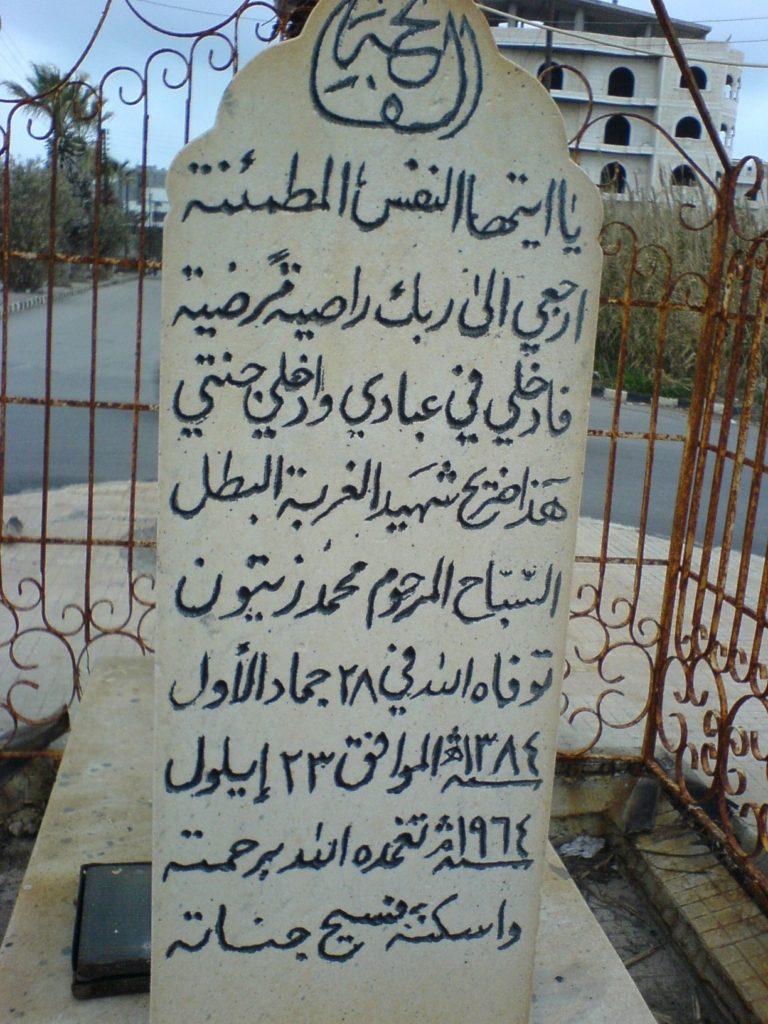 الفاتحة
يٰا ايتها النفس المطمئنة
ارجعي الىٰ ربك راضية مرضية
فادخلي في عبادي وادخلي جنتي
هَذا ضريح شهَيد الغربة البطل
السّبّاح المرحوم محمد زيتون
توفاه الله في ٢٨ جماد الأول
سنة ١٣٨٤ﻫ الموافق ٢٣ إيلول
سنة ١٩٦٤م تغمده الله برحمته
واسكنه فسيح جناته